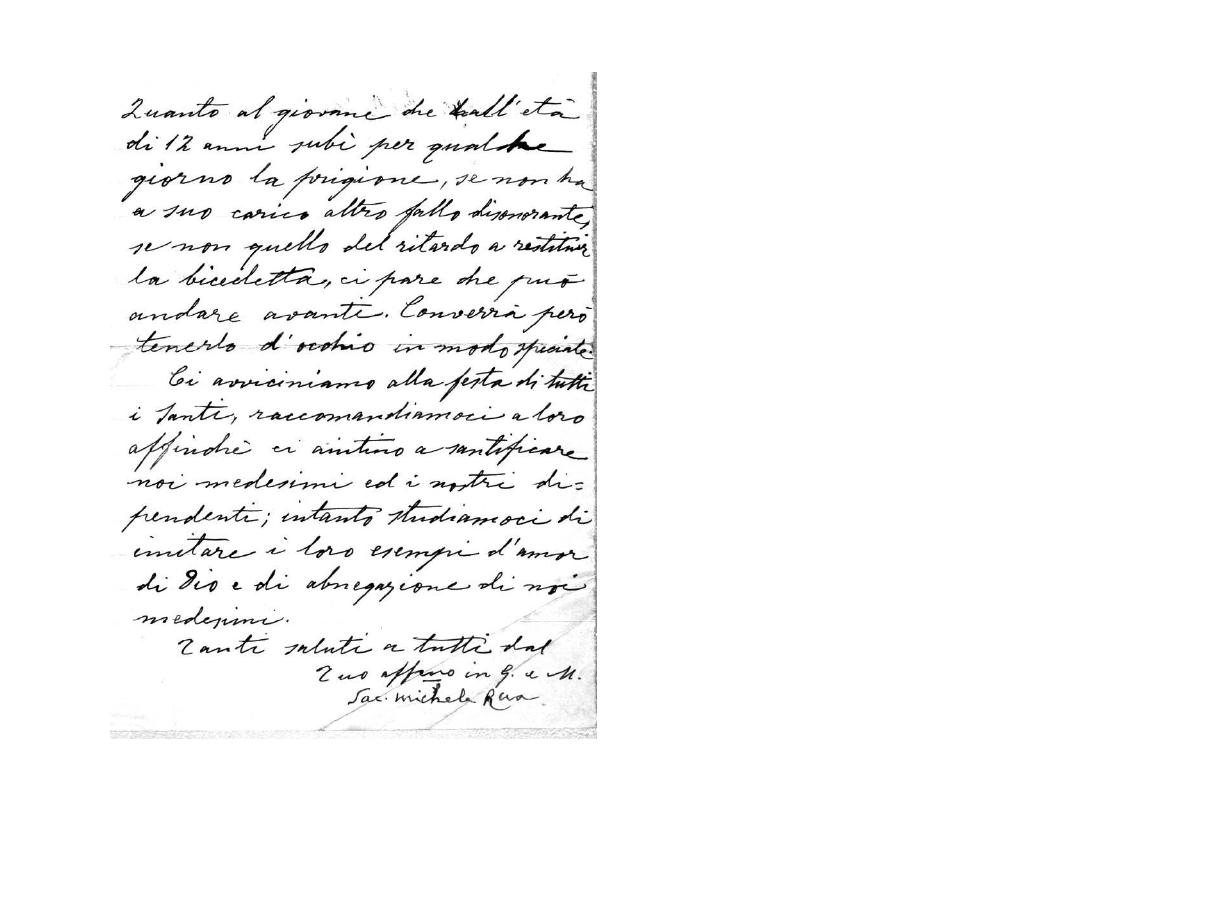 Quanto al giovane che dall'età
di 12 anni subì per qualche
giorno la prigione, se non ha
a suo carico altro fallo disonorante,
se non quello del ritardo a restituir
la bicicletta, ci pare che può
andare avanti. Converrà però
tenerlo d'occhio in modo speciale.
Ci avviciniamo alla festa di tutti
i Santi, raccomandiamoci a loro
affinchè ci aiutino a santificare
noi medesimi ed i nostri di=
pendenti; intanto studiamoci di
imitare i loro esempi d'amor
di Dio e di abnegazione di noi
medesimi.
Tanti saluti a tutti dal
Tuo affmo in G. e M.
Sac. Michele Rua